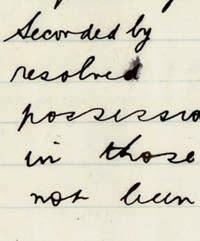 Seconded by
resolved
possessio
in those
not been